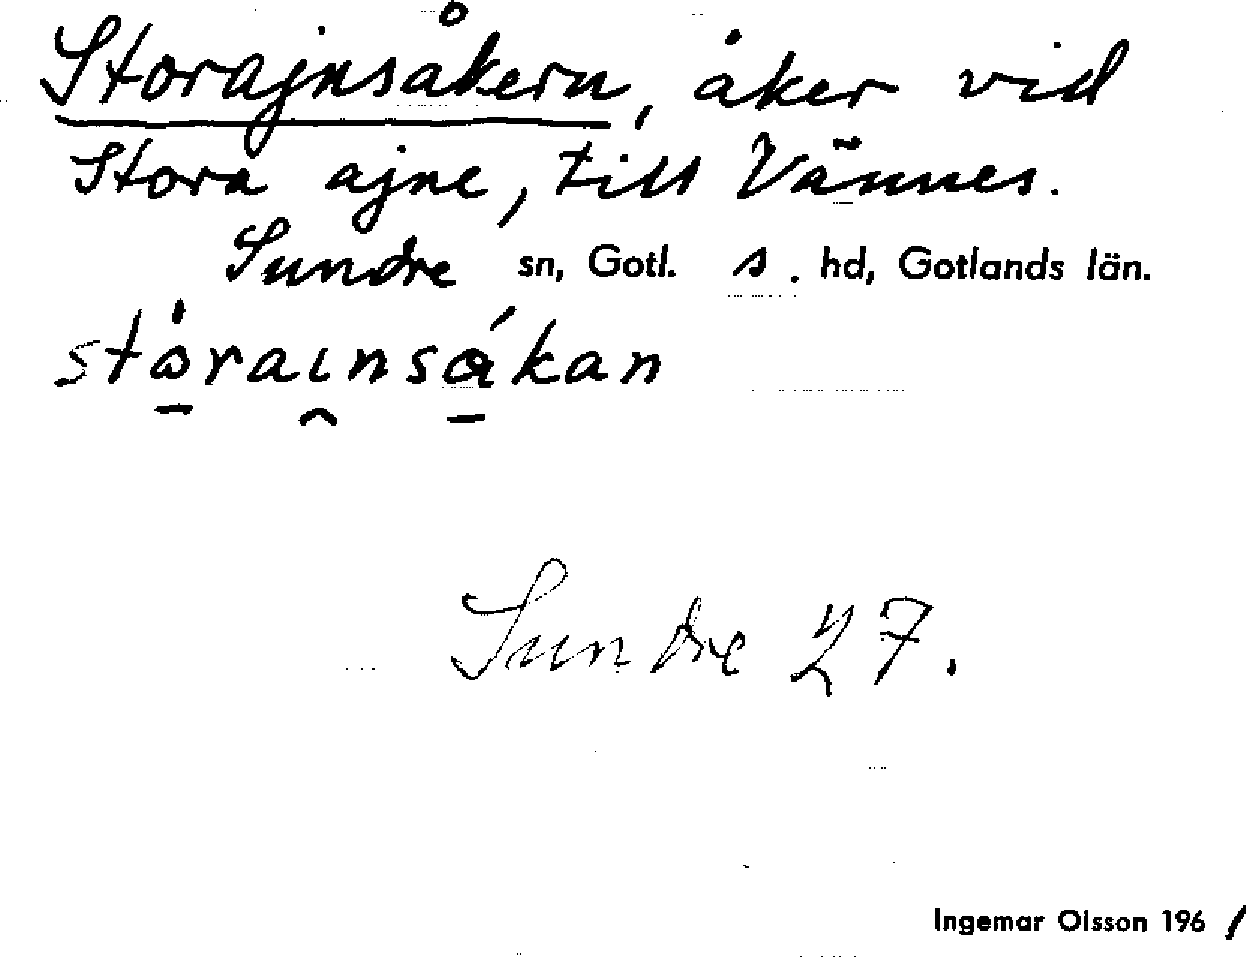 Storajnsåkern, åker vid
Stora ajne, till Vännes.
Sundre sn, Gotl. s. hd, Gotlands län.
stårainsákan
Sundre 27.
Ingemar Olsson 1961